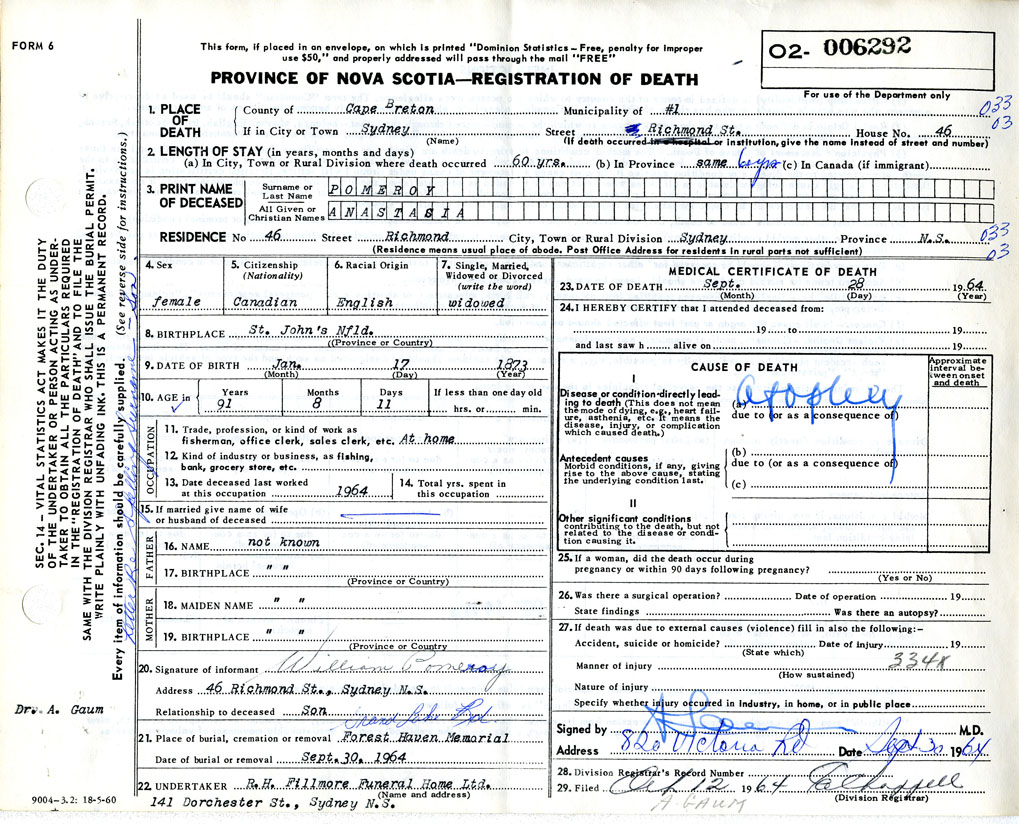 FORM 6
This form, if placed in an envelope, on which is printed "Dominion Statistics – Free, penalty for improper
use $50," and properly addressed will pass through the mail "FREE"
PROVINCE OF NOVA SCOTIA—REGISTRATION OF DEATH
02- 006292
For use of the Department only
1. PLACE OF DEATH
County of Cape Breton Municipality of #1
033
03
If in City or Town Sydney Street Richmond St. House No. 46
(Name) (If death occurred in a hospital or institution, give the name instead of street and number)
2. LENGTH OF STAY (in years, months and days)
(a) In City, Town or Rural Division where death occurred 60 yrs. (b) In Province same (c) In Canada (if immigrant)
3. PRINT NAME OF DECEASED
Surname or Last Name POMEROY
All Given or Christian Names ANASTASIA
RESIDENCE No 46 Street Richmond City, Town or Rural Division Sydney Province N.S.
033
03
(Residence means usual place of abode. Post Office Address for residents in rural parts not sufficient)
4. Sex
female
5. Citizenship
(Nationality)
Canadian
6. Racial Origin
English
7. Single, Married,
Widowed or Divorced
(write the word)
widowed
8. BIRTHPLACE St. John's Nfld.
((Province or Country)
9. DATE OF BIRTH Jan. 17 1873
(Month) (Day) (Year)
10. AGE in
Years Months Days If less than one day old
91 8 11 hrs. or min.
OCCUPATION
11. Trade, profession, or kind of work as
fisherman, office clerk, sales clerk, etc. At home
12. Kind of industry or business, as fishing,
bank, grocery store, etc.
13. Date deceased last worked
at this occupation 1964
14. Total yrs. spent in
this occupation
15. If married give name of wife
or husband of deceased
FATHER
16. NAME not known
17. BIRTHPLACE " "
(Province or Country)
MOTHER
18. MAIDEN NAME " "
19. BIRTHPLACE " "
(Province or Country)
20. Signature of informant William Pomeroy
Address 46 Richmond St., Sydney N.S.
Relationship to deceased Son
21. Place of burial, cremation or removal Forest Haven Memorial
Date of burial or removal Sept. 30, 1964
22. UNDERTAKER R.H. Fillmore Funeral Home Ltd.
(Name and address)
141 Dorchester St., Sydney N.S.
MEDICAL CERTIFICATE OF DEATH
23. DATE OF DEATH Sept. 28 1964
(Month) (Day) (Year)
24. I HEREBY CERTIFY that I attended deceased from:
19 to 19
and last saw h alive on 19
CAUSE OF DEATH
Approximate
interval be-
tween onset
and death
I
Disease or condition directly lead-
ing to death (This does not mean
the mode of dying, e.g., heart fail-
ure, asthenia, etc. It means the
disease, injury, or complication
which caused death.)
(a)
due to (or as a consequence of)
Antecedent causes
Morbid conditions, if any, giving
rise to the above cause, stating
the underlying condition last.
(b)
due to (or as a consequence of)
(c)
II
Other significant conditions
contributing to the death, but not
related to the disease or condi-
tion causing it.
25. If a woman, did the death occur during
pregnancy or within 90 days following pregnancy?
(Yes or No)
26. Was there a surgical operation? Date of operation 19
State findings Was there an autopsy?
27. If death was due to external causes (violence) fill in also the following:–
Accident, suicide or homicide? Date of injury 19
(State which)
Manner of injury 334X
(How sustained)
Nature of injury
Specify whether injury occurred in industry, in home, or in public place
Signed by M.D.
Address 820 Victoria Rd Date Sept 30 1964
28. Division Registrar's Record Number
29. Filed 12 1964
(Division Registrar)
A GAUM
SEC. 14 – VITAL STATISTICS ACT MAKES IT THE DUTY
OF THE UNDERTAKER OR PERSON ACTING AS UNDER-
TAKER TO OBTAIN ALL THE PARTICULARS REQUIRED
IN THE "REGISTRATION OF DEATH" AND TO FILE THE
SAME WITH THE DIVISION REGISTRAR WHO SHALL ISSUE THE BURIAL PERMIT.
WRITE PLAINLY WITH UNFADING INK. THIS IS A PERMANENT RECORD.
Every item of information should be carefully supplied. (See reverse side for instructions.)
Letter Re Spelling Surname - Son
Dr. A. Gaum
9004-3.2: 18-5-60